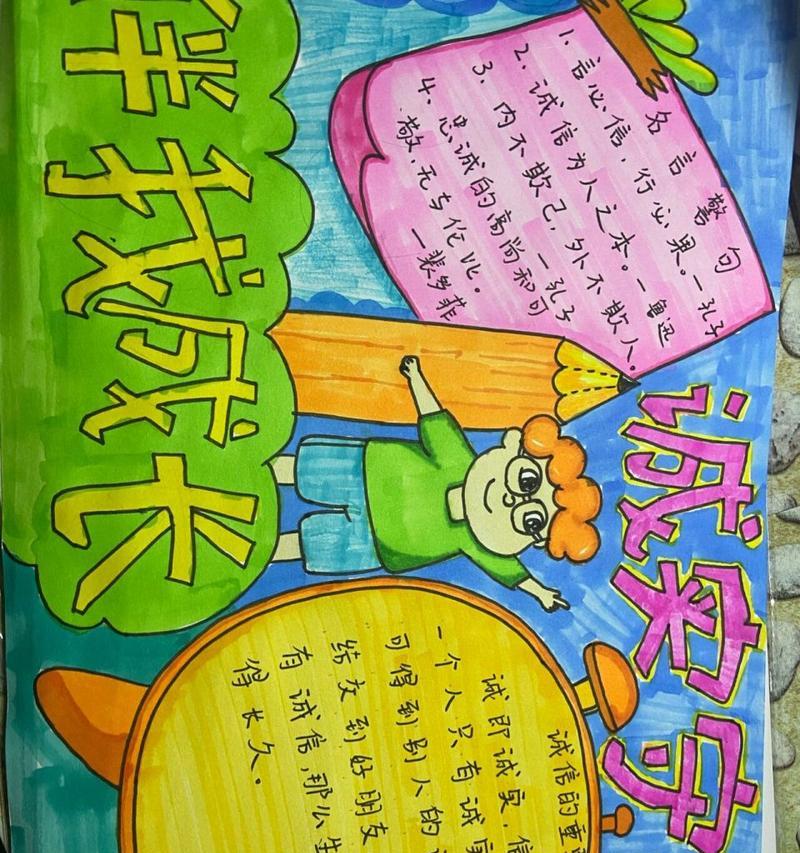 诚实守
伴我成长
名言警句
1. 言必信,行必果。一孔子
2. 诚信为人之本。一鲁迅
3. 内不欺己,外不欺人。
一孔子
4. 忠诚的高尚和可
敬,无与伦比。
一裴多菲
诚信的重
诚即诚实,信
一个人只有诚实
可得到别人的
结交到好朋友
有诚信,那么生
得长久。